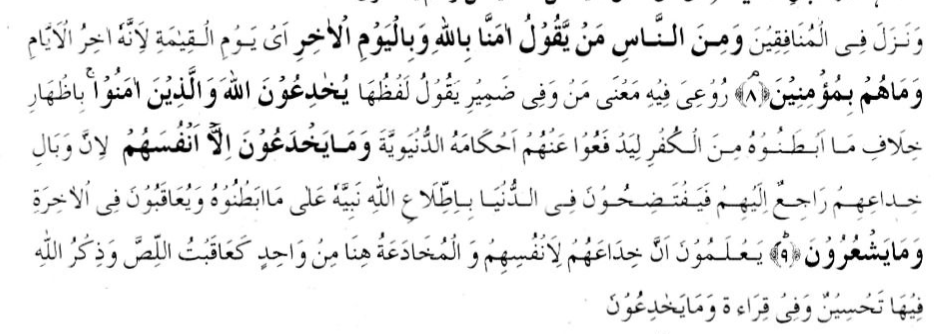 وَنَزَلَ فِى الْمُنَافِقِيْنَ وَمِنَ النَّاسِ مَنْ يَّقُوْلُ اٰمَنَّا بِاللّٰهِ وَبِالْيَوْمِ الْاٰخِرِ اَىْ يَوْمِ الْقِيٰمَةِ لِاَنَّهٗ اٰخِرُ الْاَيَّامِ
وَمَاهُمْ بِمُؤْمِنِيْنَ ﴿۸﴾ رُوْعِىَ فِيْهِ مَعْنٰى مَنْ وَفِى ضَمِيْرِ يَقُوْلُ لَفْظُهَا يُخٰدِعُوْنَ اللّٰهَ وَالَّذِيْنَ اٰمَنُوْا ۚ بِاِظْهَارِ
خِلَافِ مَا اَبْطَنُوْهُ مِنَ الْكُفْرِ لِيَدْ فَعُوْا عَنْهُمْ اَحْكَامَهُ الدُّنْيَوِيَّةَ وَمَايَخْدَعُوْنَ اِلَّآ اَنْفُسَهُمْ لِاَنَّ وَبَالِ
خِدَاعِهِمْ رَاجِعٌ اِلَيْهِمْ فَيَفْتَضِحُوْنَ فِى الدُّنْيَا بِاِطِّلَاعِ اللّٰهِ نَبِيَّهٗ عَلٰى مَااَبْطَنُوْهُ وَيُعَاقَبُوْنَ فِى الْاٰخِرَةِ
وَمَايَشْعُرُوْنَ ﴿۹﴾ يَعْلَمُوْنَ اَنَّ خِدَاعَهُمْ لِاَنْفُسِهِمْ وَ الْمُخَادَعَةُ هِنَا مِنْ وَاحِدٍ كَعَاقَبْتُ اللِّصَّ وَذِكْرُ اللّٰهِ
فِيْهَا تَحْسِيْنٌ وَفِىْ قِرَاءة وَمَايَخْدِعُوْنَ